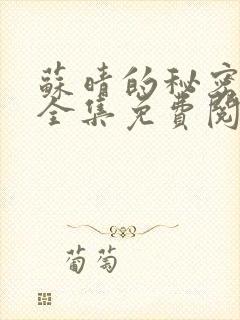 蘇晴的秘密
全集免費閱
葡萄